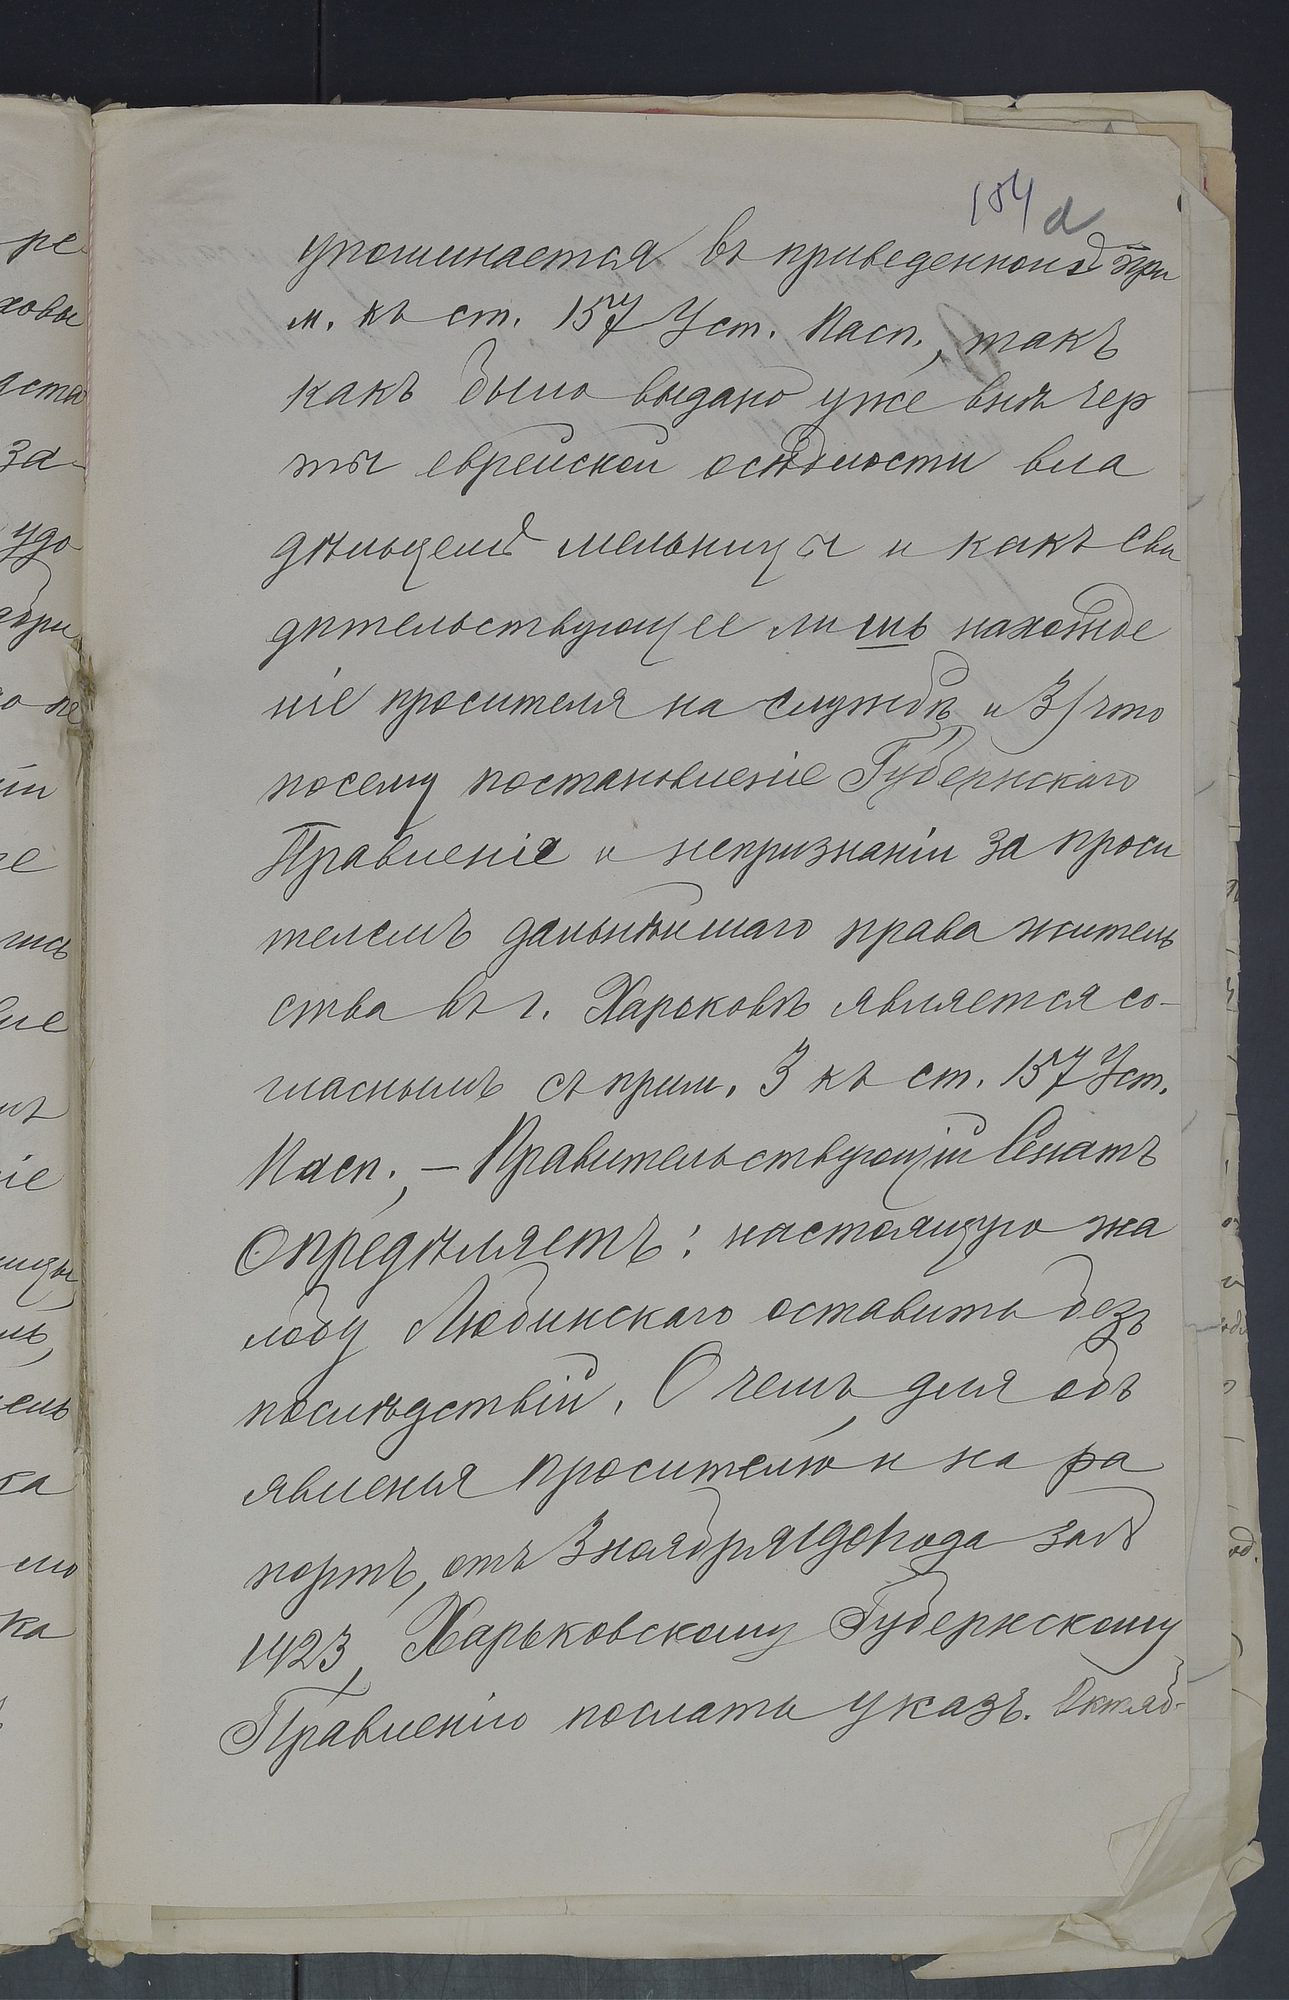 104 а
упоминается въ приведенномъ при
м. къ ст. 157 Уст. Пасп., такъ
какъ было выдано уже внѣ чер
ты еврейской осѣдлости вла
дѣльцемъ мельницы и какъ сви
дѣтельствующее лишь нахожде
ніе просителя на службѣ и 3/ что
посему постановленіе Губернскаго
Правленія о непризнаніи за проси
телемъ дальнѣйшаго права житель
ства въ г. Харьковѣ является со-
гласнымъ съ прим. 3 къ ст. 157 Уст.
Пасп., — Правительствующій Сенатъ
Опредѣляетъ: настоящую жа
лобу Любинскаго оставить безъ
послѣдствій. О чемъ, для объ
явленія просителю и на ра
портъ, отъ 3 ноября года за №
1423, Харьковскому Губернскому
Правленію послать указъ. Октяб-